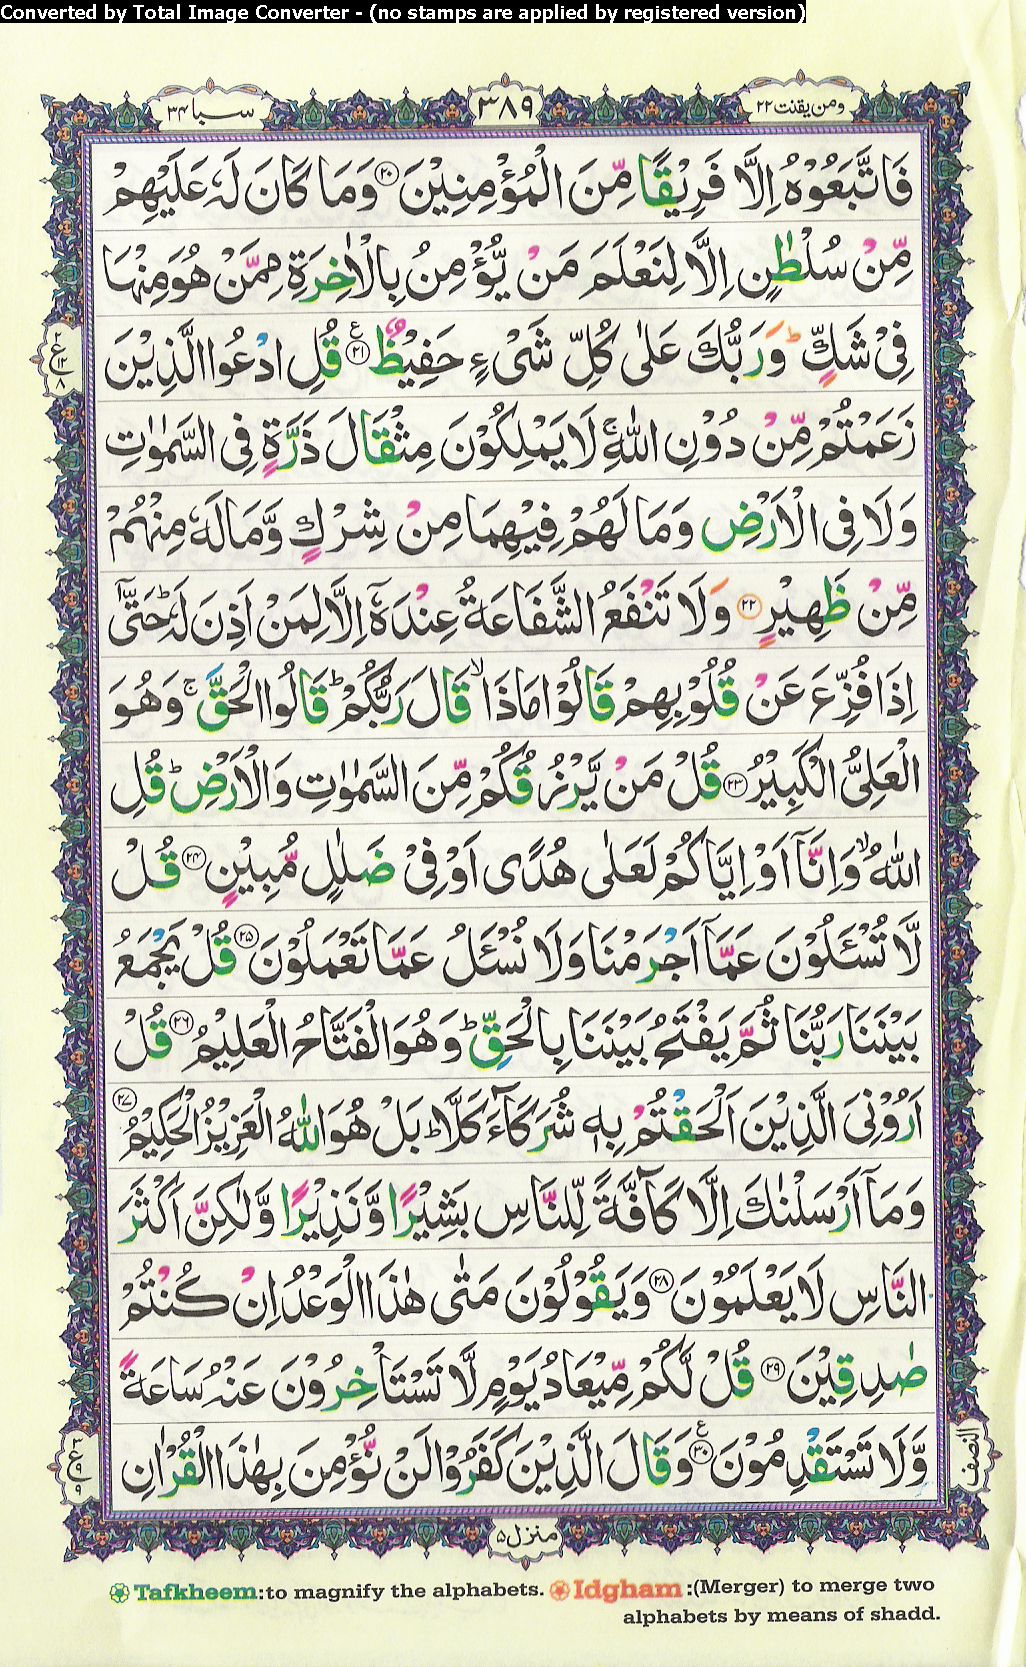 Converted by Total Image Converter - (no stamps are applied by registered version)
ومن یقنت ۲۲
۳۸۹
سبا ۳۴
فَاتَّبَعُوْهُ اِلَّا فَرِیْقًا مِّنَ الْمُؤْمِنِیْنَ ۲۰ وَمَا كَانَ لَهٗ عَلَیْهِمْ
مِّنْ سُلْطٰنٍ اِلَّا لِنَعْلَمَ مَنْ یُّؤْمِنُ بِالْاٰخِرَةِ مِمَّنْ هُوَ مِنْهَا
فِیْ شَكٍّ ؕ وَرَبُّكَ عَلٰی كُلِّ شَیْءٍ حَفِیْظٌ ۲۱ ع قُلِ ادْعُوا الَّذِیْنَ
زَعَمْتُمْ مِّنْ دُوْنِ اللّٰهِ ۚ لَا یَمْلِكُوْنَ مِثْقَالَ ذَرَّةٍ فِی السَّمٰوٰتِ
وَلَا فِی الْاَرْضِ وَمَا لَهُمْ فِیْهِمَا مِنْ شِرْكٍ وَّمَا لَهٗ مِنْهُمْ
مِّنْ ظَهِیْرٍ ۲۲ وَلَا تَنْفَعُ الشَّفَاعَةُ عِنْدَهٗۤ اِلَّا لِمَنْ اَذِنَ لَهٗ ؕ حَتّٰۤی
اِذَا فُزِّعَ عَنْ قُلُوْبِهِمْ قَالُوْا مَاذَا ۙ قَالَ رَبُّكُمْ ؕ قَالُوا الْحَقَّ ۚ وَهُوَ
الْعَلِیُّ الْكَبِیْرُ ۲۳ قُلْ مَنْ یَّرْزُقُكُمْ مِّنَ السَّمٰوٰتِ وَالْاَرْضِ ؕ قُلِ
اللّٰهُ ۙ وَاِنَّاۤ اَوْ اِیَّاكُمْ لَعَلٰی هُدًی اَوْ فِیْ ضَلٰلٍ مُّبِیْنٍ ۲۴ قُلْ
لَّا تُسْـَٔلُوْنَ عَمَّاۤ اَجْرَمْنَا وَلَا نُسْـَٔلُ عَمَّا تَعْمَلُوْنَ ۲۵ قُلْ یَجْمَعُ
بَیْنَنَا رَبُّنَا ثُمَّ یَفْتَحُ بَیْنَنَا بِالْحَقِّ ؕ وَهُوَ الْفَتَّاحُ الْعَلِیْمُ ۲۶ قُلْ
اَرُوْنِیَ الَّذِیْنَ اَلْحَقْتُمْ بِهٖ شُرَكَآءَ كَلَّا ؕ بَلْ هُوَ اللّٰهُ الْعَزِیْزُ الْحَكِیْمُ ۲۷
وَمَاۤ اَرْسَلْنٰكَ اِلَّا كَآفَّةً لِّلنَّاسِ بَشِیْرًا وَّنَذِیْرًا وَّلٰكِنَّ اَكْثَرَ
النَّاسِ لَا یَعْلَمُوْنَ ۲۸ وَیَقُوْلُوْنَ مَتٰی هٰذَا الْوَعْدُ اِنْ كُنْتُمْ
صٰدِقِیْنَ ۲۹ قُلْ لَّكُمْ مِّیْعَادُ یَوْمٍ لَّا تَسْتَاْخِرُوْنَ عَنْهُ سَاعَةً
وَّلَا تَسْتَقْدِمُوْنَ ۳۰ ع وَقَالَ الَّذِیْنَ كَفَرُوْا لَنْ نُّؤْمِنَ بِهٰذَا الْقُرْاٰنِ
۲ ع ۱۲ ۸
۳ ع ۹ ۹
النصف
منزل ۵
Tafkheem:to magnify the alphabets. Idgham :(Merger) to merge two
alphabets by means of shadd.